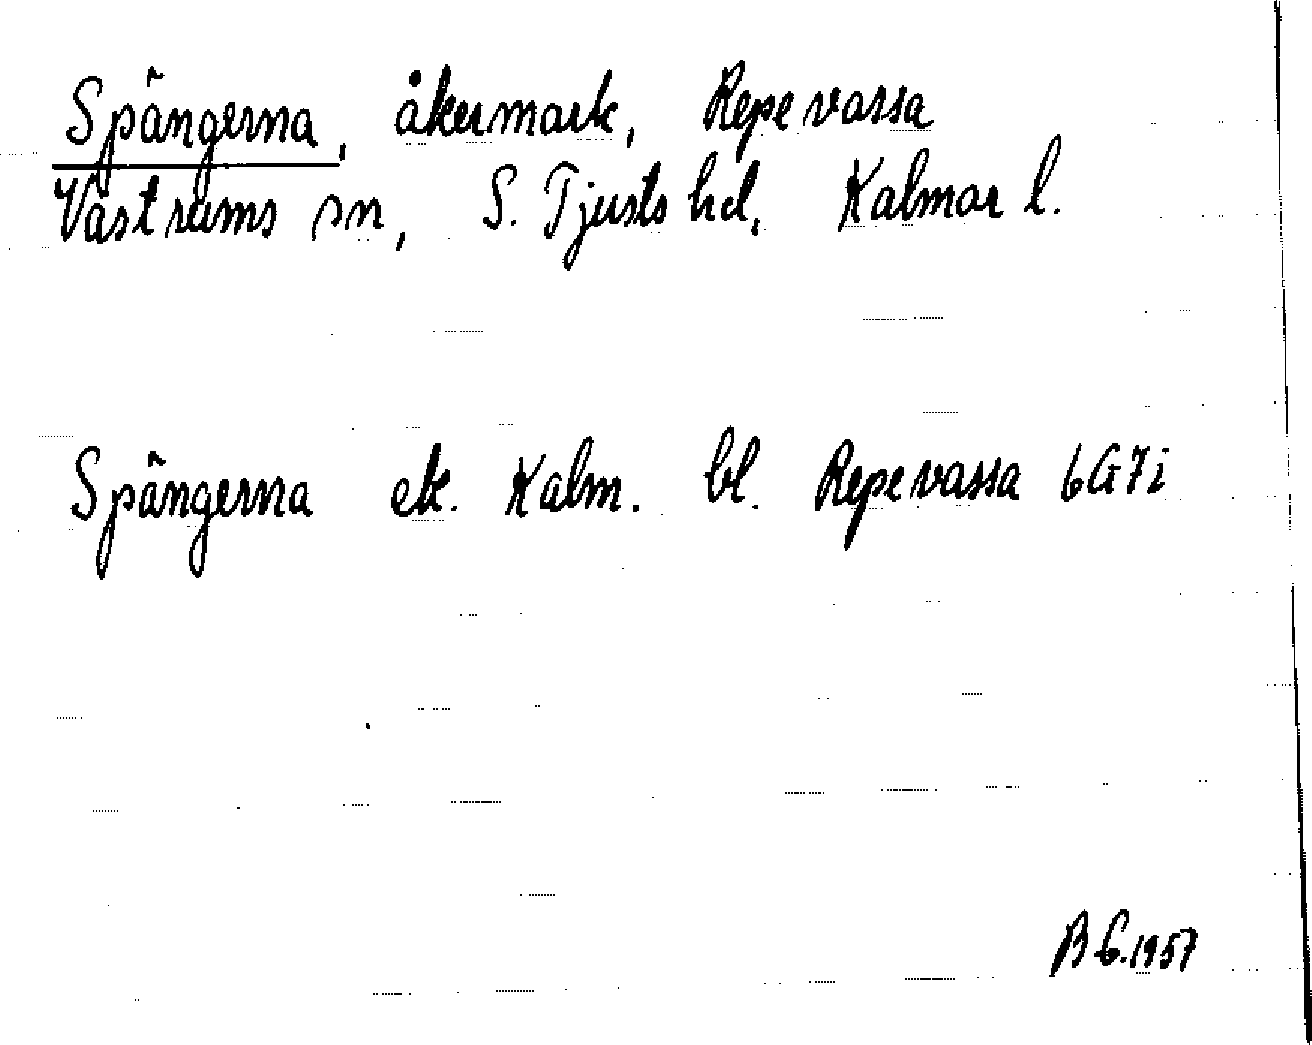 Spängerna, åkermark, Repevassa
Västrums sn, S. Tjusts hd, Kalmar l.
Spängerna ek. Kalm. bl. Repevassa 6G7i
B G. 1957